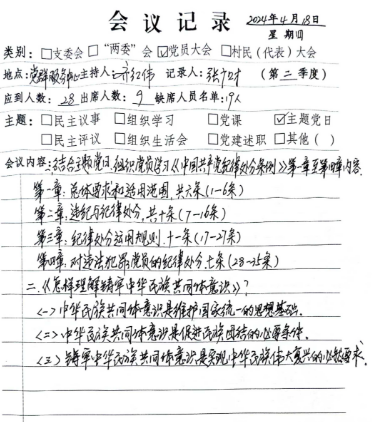 会议记录
2024年4月18日
星期四
类别：□支委会 □“两委”会 ☑党员大会 □村民（代表）大会
地点：党群服务中心 主持人：齐红伟 记录人：（第二季度）
应到人数：28 出席人数：9 缺席人员名单：19人
主题：□民主议事 □组织学习 □党课 ☑主题党日
□民主评议 □组织生活会 □党建述职 □其他（ ）
会议内容：结合主题党日，组织党员学习《中国共产党纪律处分条例》第一章至第四章内容.
第一章：总体要求和适用范围，共六条（1-6条）
第二章：违纪与纪律处分，共十条（7-16条）
第三章：纪律处分运用规则，十一条（17-27条）
第四章：对违法犯罪党员的纪律处分，七条（28-35条）
二、《怎样理解铸牢中华民族共同体意识》？
<一>中华民族共同体意识是维护国家统一的思想基础.
<二>中华民族共同体意识是促进民族团结的必要条件.
<三>铸牢中华民族共同体意识是实现中华民族伟大复兴的必然要求.